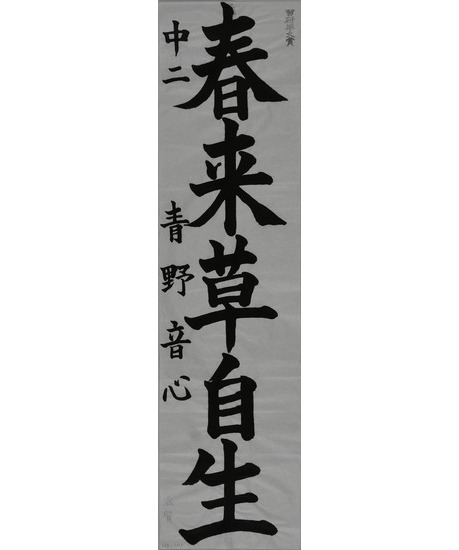 春来草自生
中二 青野音心